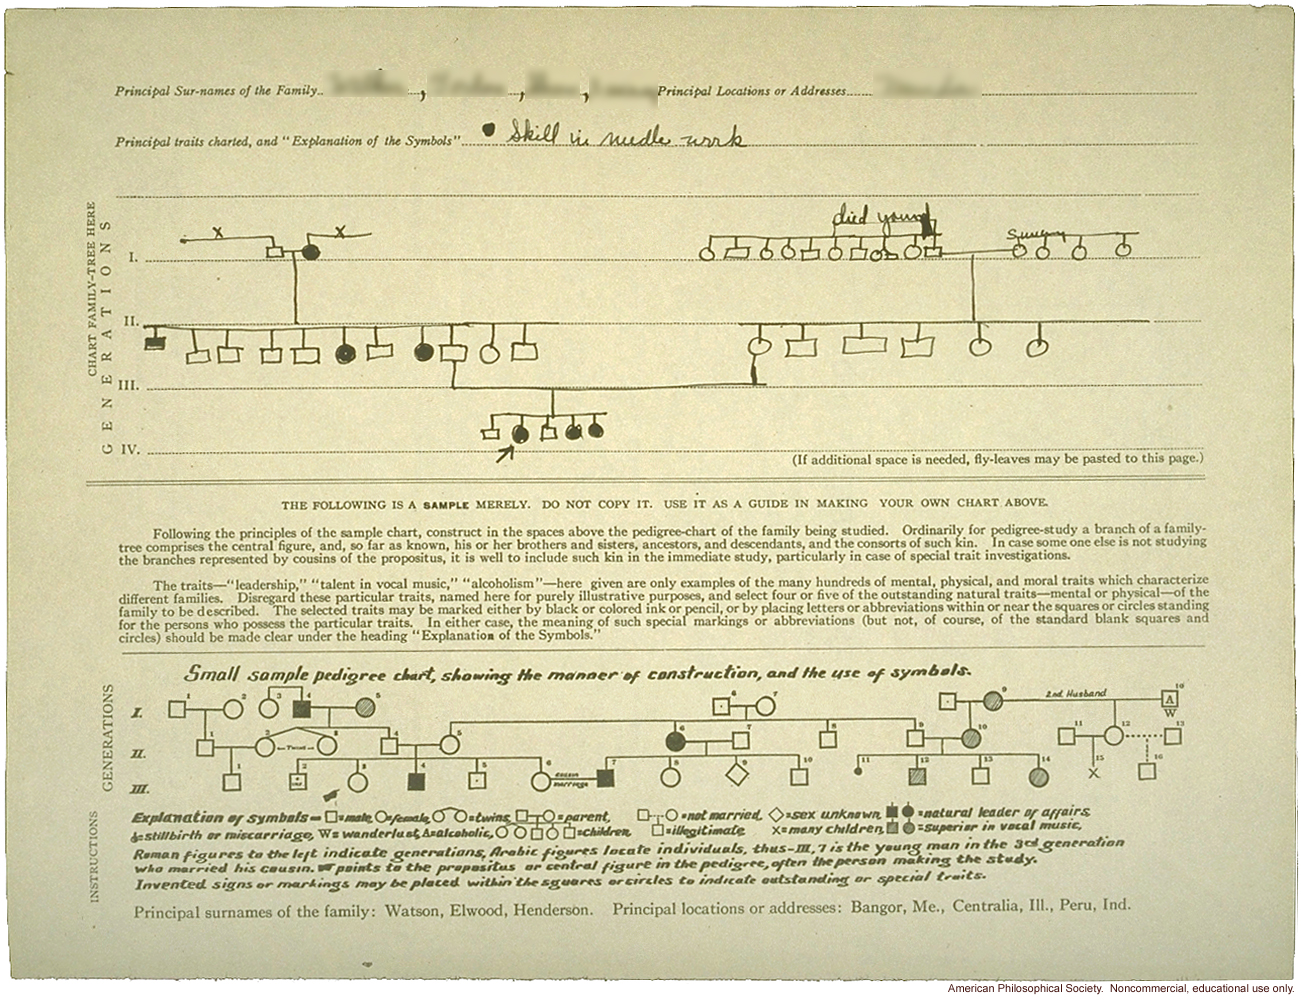 Principal Sur-names of the Family.. , , , Principal Locations or Addresses......
Principal traits charted, and "Explanation of the Symbols".. ● Skill in needle work
CHART FAMILY-TREE HERE
GENERATIONS
died young
x x
I.
II.
III.
IV.
(If additional space is needed, fly-leaves may be pasted to this page.)
THE FOLLOWING IS A SAMPLE MERELY. DO NOT COPY IT. USE IT AS A GUIDE IN MAKING YOUR OWN CHART ABOVE.
Following the principles of the sample chart, construct in the spaces above the pedigree-chart of the family being studied. Ordinarily for pedigree-study a branch of a family-
tree comprises the central figure, and, so far as known, his or her brothers and sisters, ancestors, and descendants, and the consorts of such kin. In case some one else is not studying
the branches represented by cousins of the propositus, it is well to include such kin in the immediate study, particularly in case of special trait investigations.
The traits—"leadership," "talent in vocal music," "alcoholism"—here given are only examples of the many hundreds of mental, physical, and moral traits which characterize
different families. Disregard these particular traits, named here for purely illustrative purposes, and select four or five of the outstanding natural traits—mental or physical—of the
family to be described. The selected traits may be marked either by black or colored ink or pencil, or by placing letters or abbreviations within or near the squares or circles standing
for the persons who possess the particular traits. In either case, the meaning of such special markings or abbreviations (but not, of course, of the standard blank squares and
circles) should be made clear under the heading "Explanation of the Symbols."
Small sample pedigree chart, showing the manner of construction, and the use of symbols.
GENERATIONS
I. 1 2 3 4 5 6 7 9 2nd Husband 10 A W
II. 1 2 Twins 3 4 5 6 7 8 9 10 11 12 13
III. 1 2 3 4 5 6 cousin marriage 7 8 9 10 11 12 13 14 15 X 16
INSTRUCTIONS
Explanation of symbols= □=male, ○=female, ○ ○=twins, □ ○=parent, □ ○=not married, ◇=sex unknown, ■ ●=natural leader of affairs,
=stillbirth or miscarriage, W=wanderlust, A=alcoholic, ○ ○ □ ○ □=children, □=illegitimate, X=many children, =superior in vocal music,
Roman figures to the left indicate generations, Arabic figures locate individuals, thus-III, 7 is the young man in the 3rd generation
who married his cousin. points to the propositus or central figure in the pedigree, often the person making the study.
Invented signs or markings may be placed within the squares or circles to indicate outstanding or special traits.
Principal surnames of the family: Watson, Elwood, Henderson. Principal locations or addresses: Bangor, Me., Centralia, Ill., Peru, Ind.
American Philosophical Society. Noncommercial, educational use only.